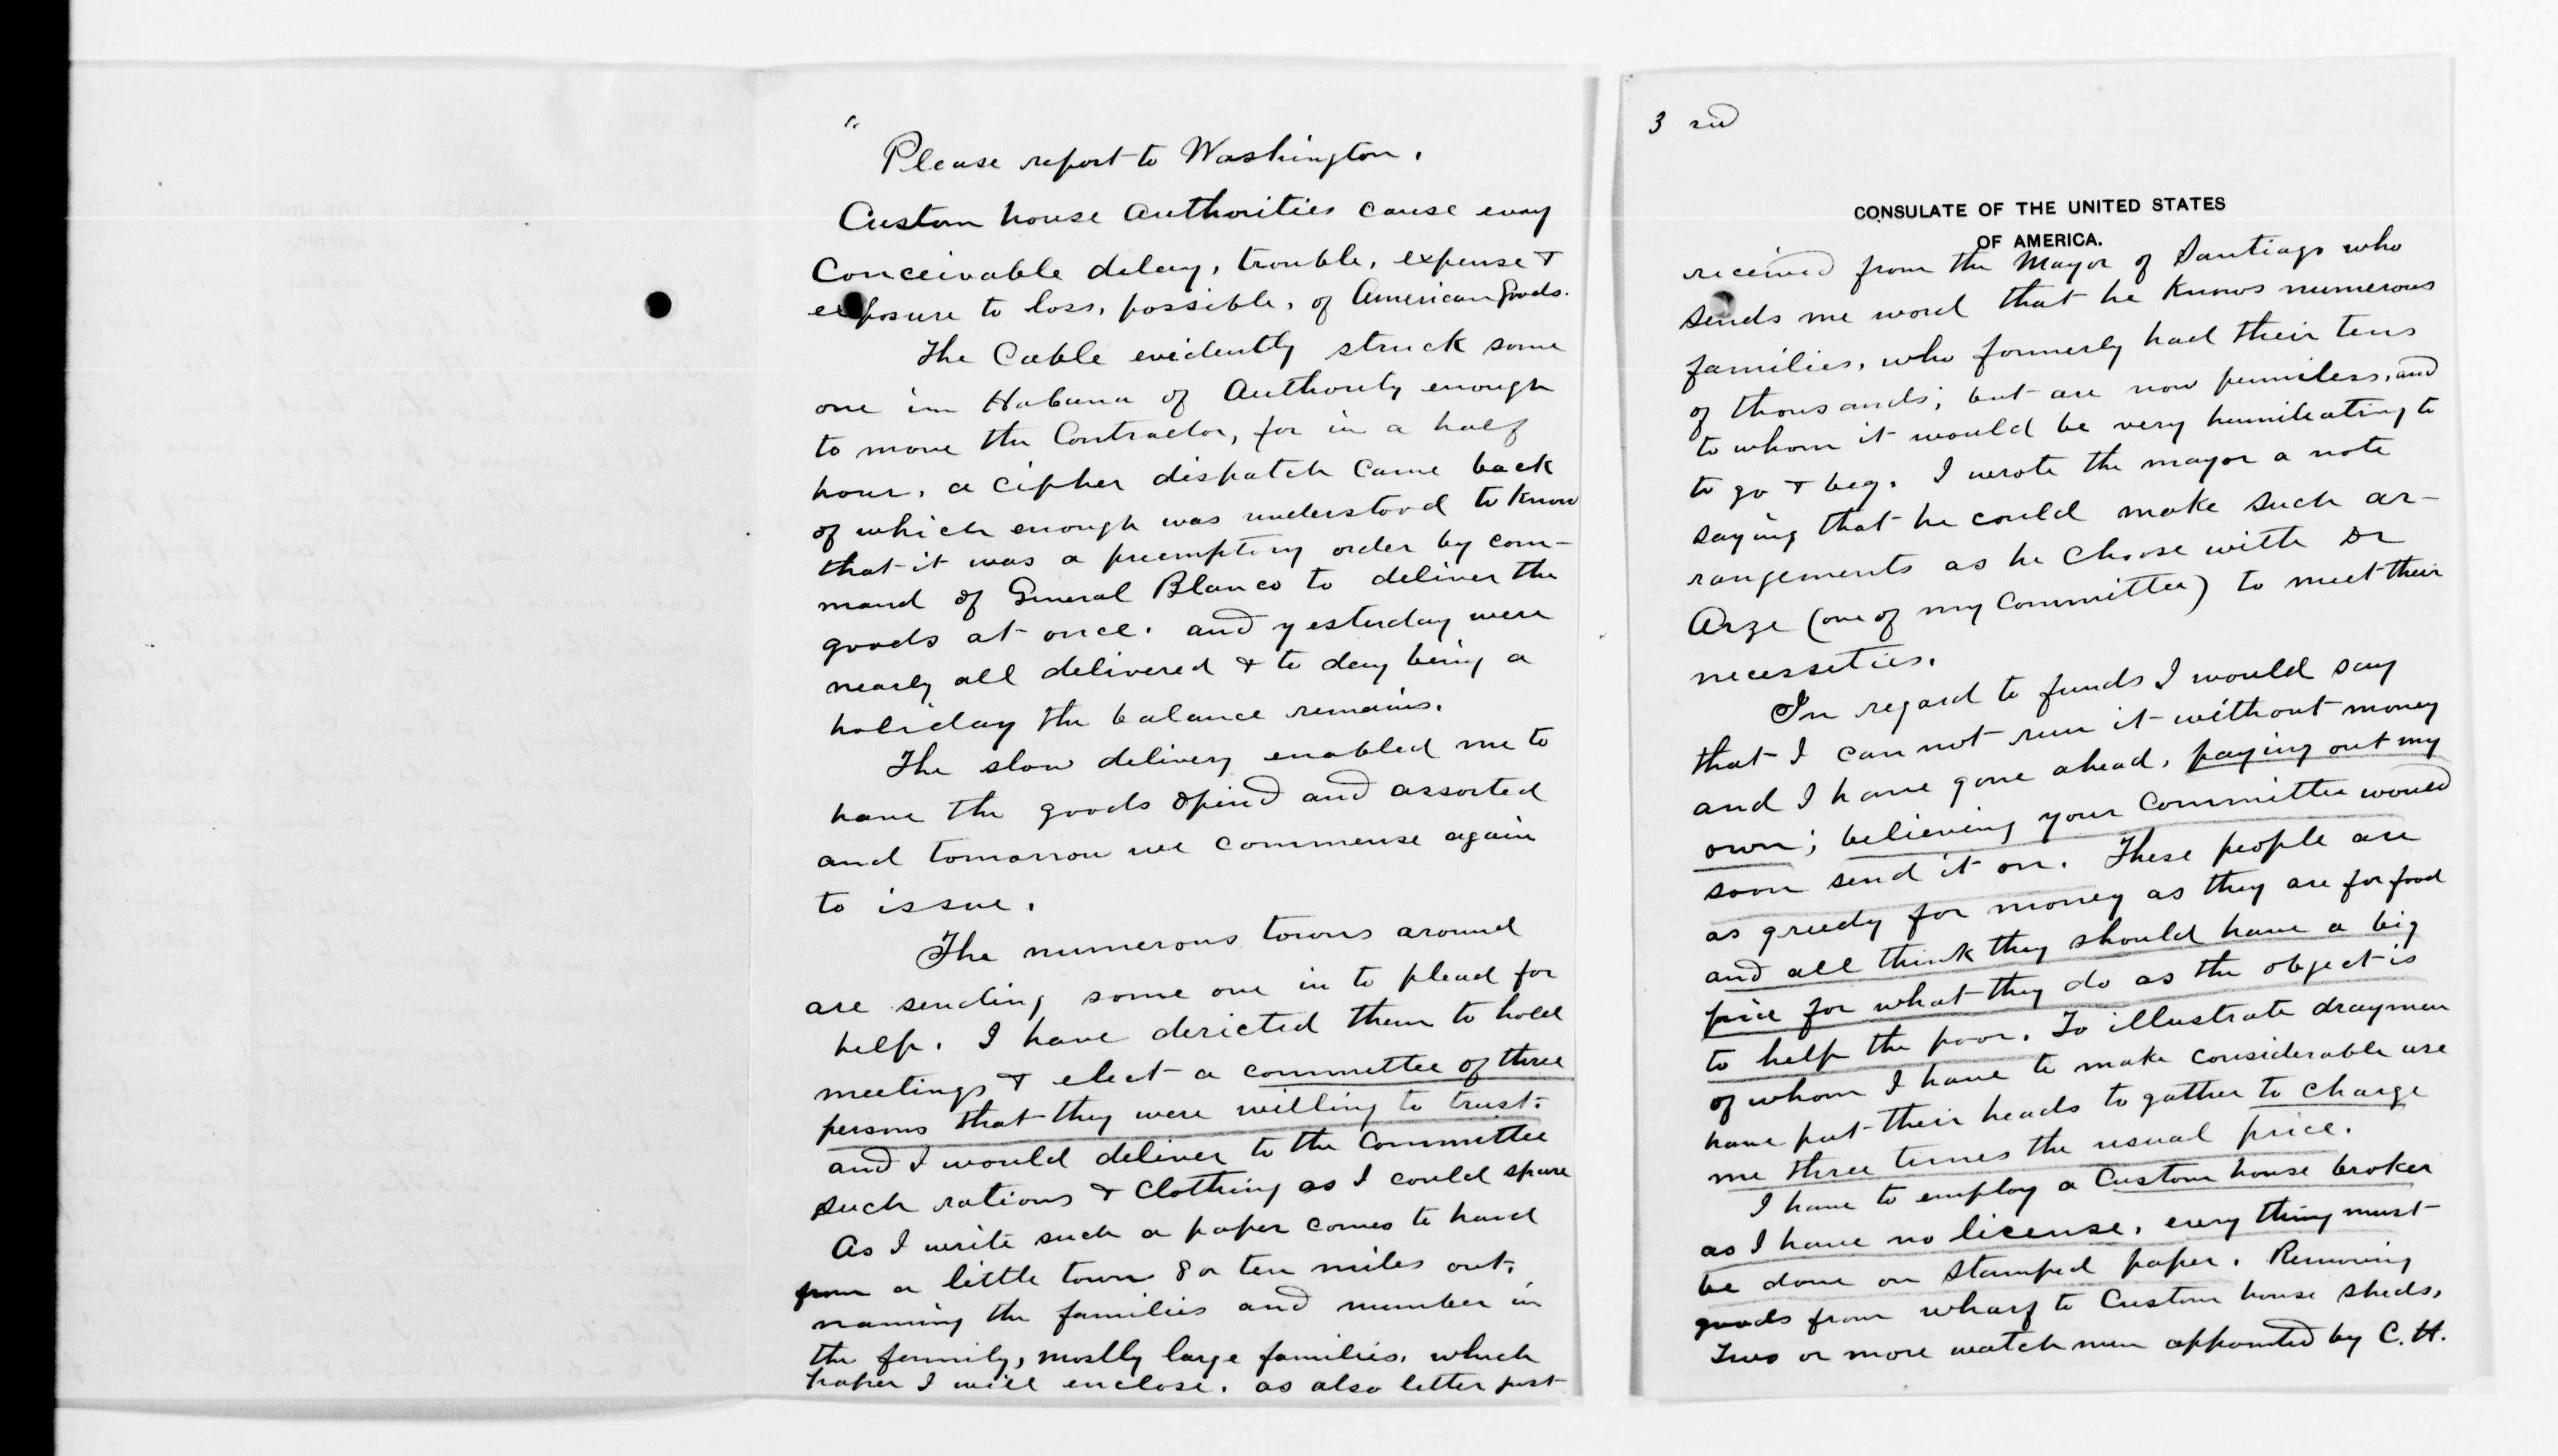 "
Please report to Washington.
Custom house Authorities cause every
Conceivable delay, trouble, expense &
exposure to loss, possible, of American Goods.
The Cable evidently struck some
one in Habana of Authority enough
to move the Contractor, for in a half
hour, a cipher dispatch came back
of which enough was understood to know
that it was a preemptery order by com-
mand of General Blanco to deliver the
goods at once. and yesterday were
nearly all delivered & to day being a
holiday the balance remains.
The slow delivery enabled me to
have the goods opened and assorted
and tomorrow we commense again
to issue.
The numerous towns around
are sending some one in to plead for
help. I have dericted them to hold
meetings & elect a committee of three
persons that they were willing to trust.
and I would deliver to the Committee
such rations & Clothing as I could spare
As I write such a paper comes to hand
from a little town 8 or ten miles out,
naming the families and number in
the family, mostly large families, which
paper I will enclose. as also letter just
3 rd
CONSULATE OF THE UNITED STATES
OF AMERICA.
received from the Mayor of Santiago who
sends me word that he knows numerous
families, who formerly had their tens
of thousands; but are now penniless, and
to whom it would be very humileating to
to go & beg. I wrote the mayor a note
saying that he could make such ar-
rangements as he choose with Dr
Arze (one of my Committee) to meet their
necesseties.
In regard to funds I would say
that I can not run it without money
and I have gone ahead, paying out my
own; believing your Committee would
soon send it on. These people are
as greedy for money as they are for food
and all think they should have a big
price for what they do as the object is
to help the poor. To illustrate draymen
of whom I have to make considerable use
have put their heads to gather to charge
me three times the usual price.
I have to employ a Custom house broker
as I have no license, every thing must
be done on stamped paper. Removing
goods from wharf to Custom house sheds,
Two or more watch men appointed by C. H.